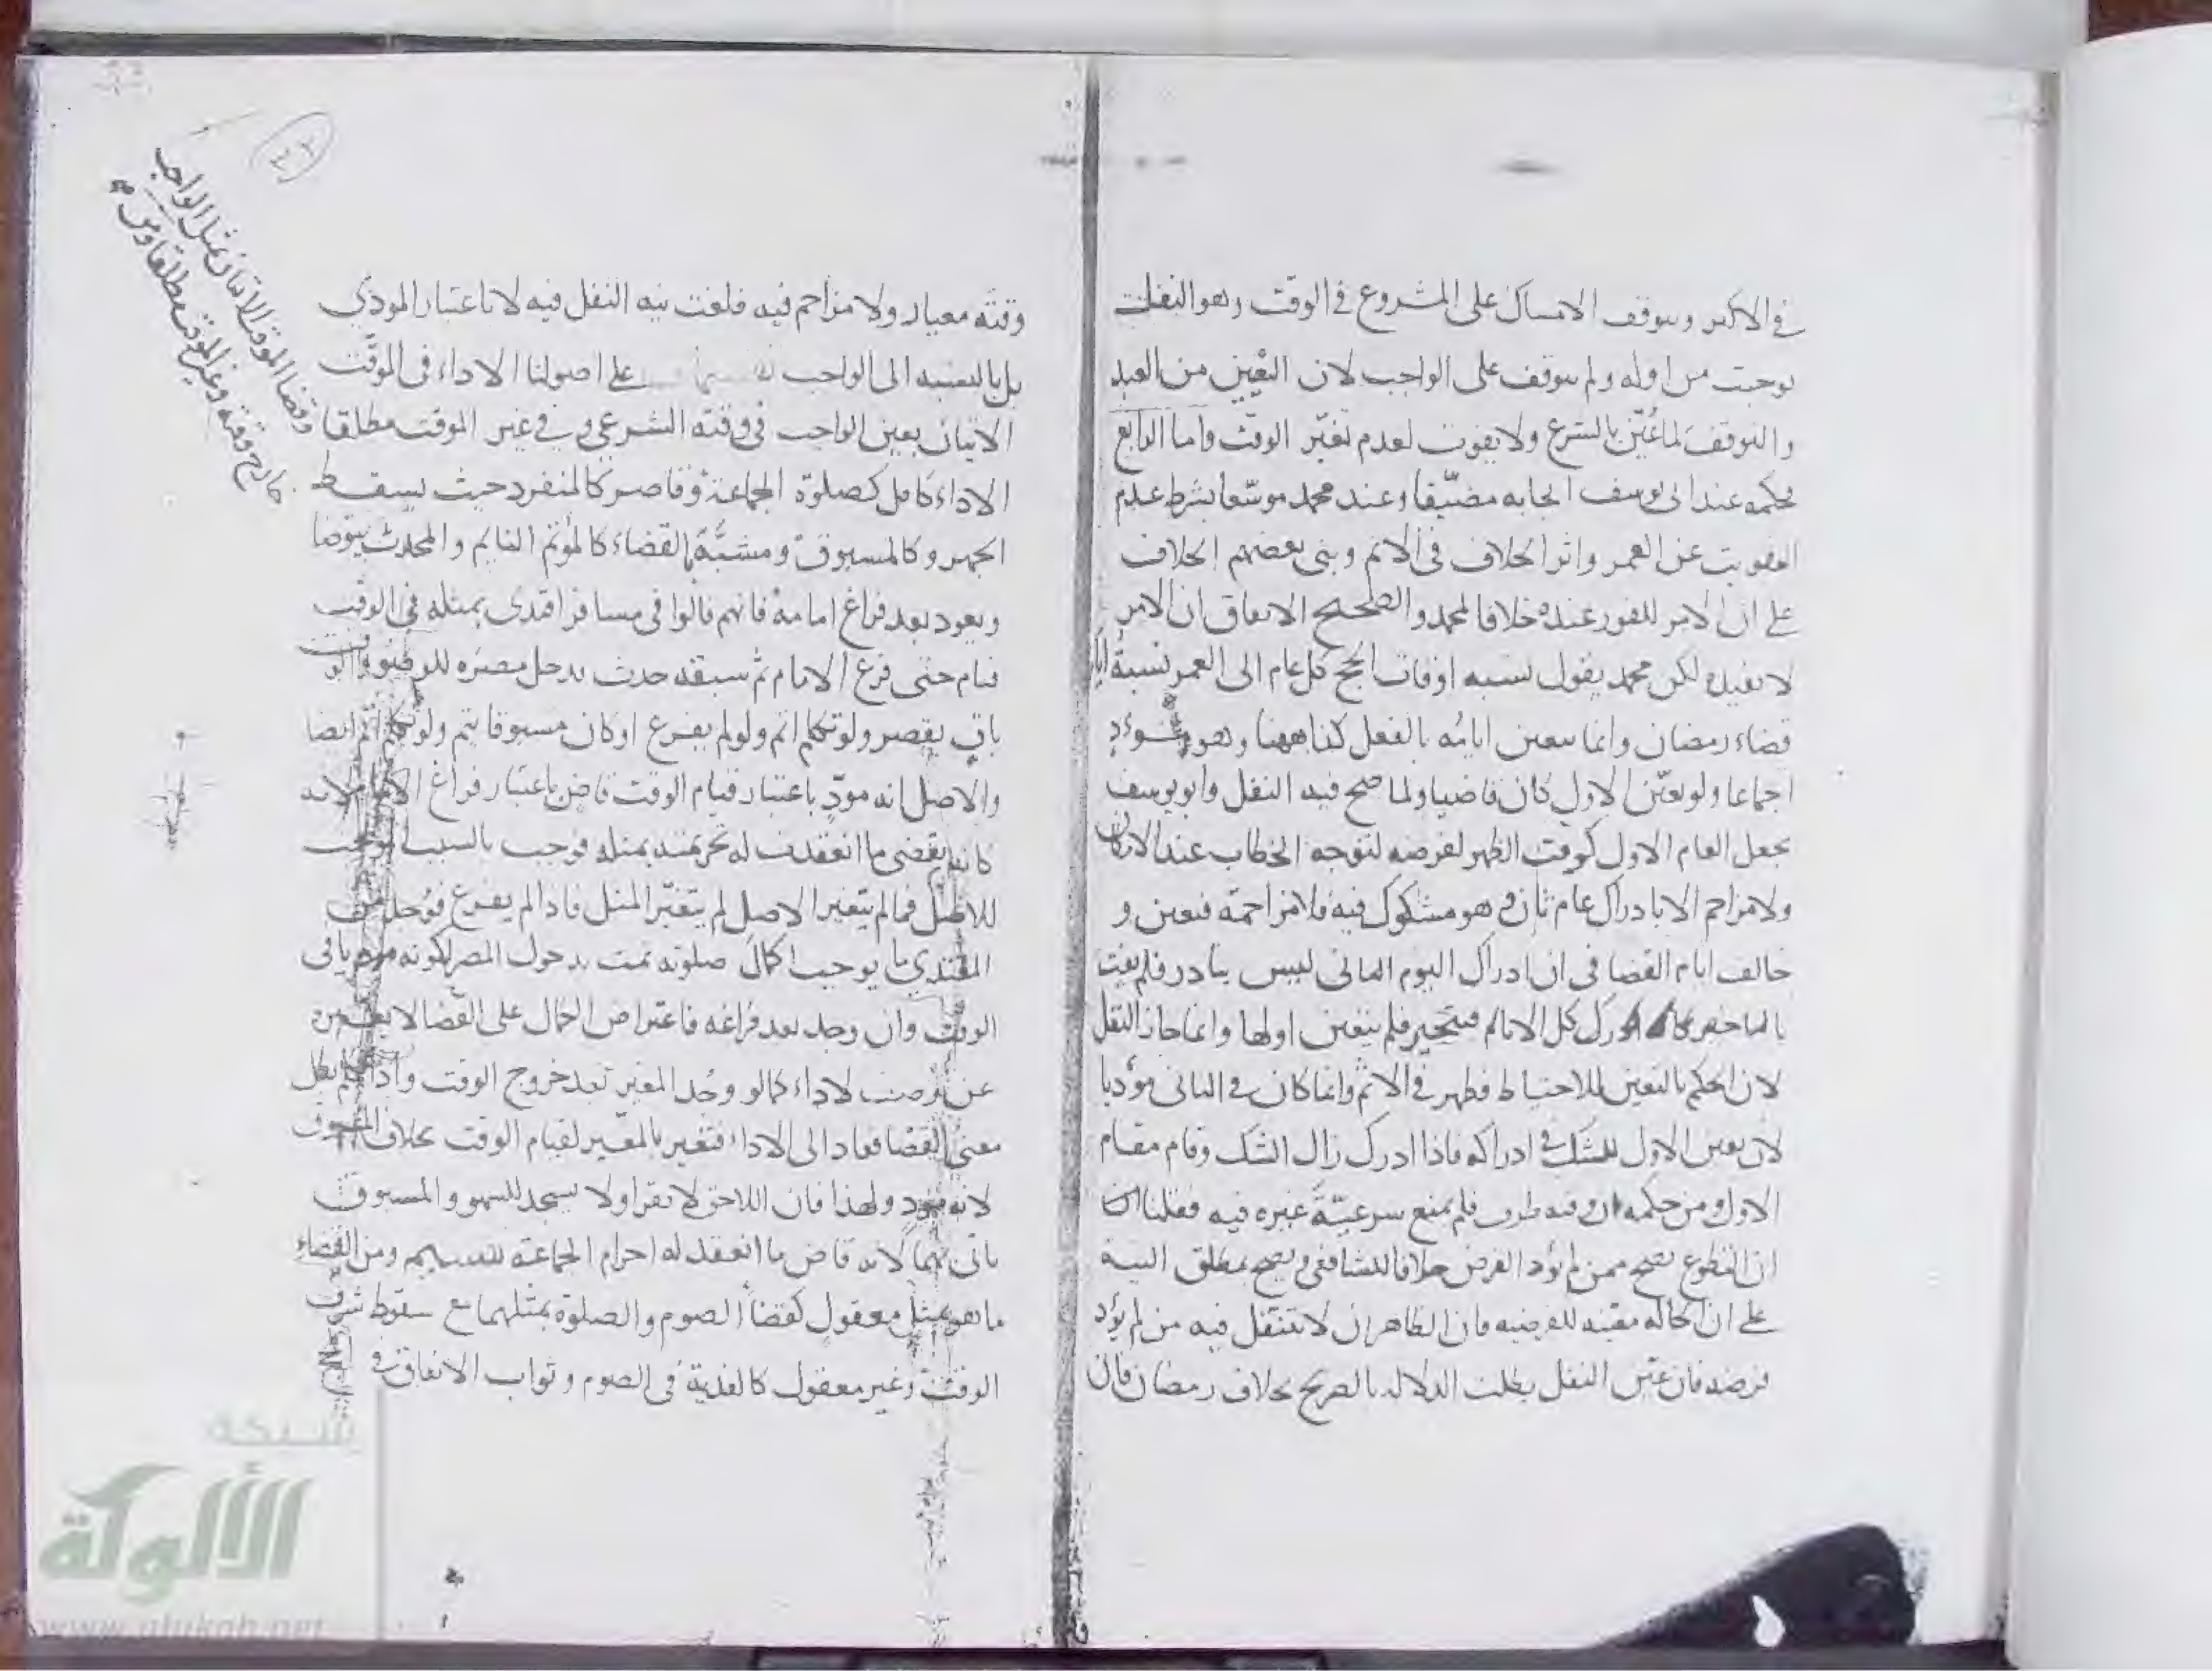 في الاكثر ويتوقف الامساك على المشروع في الوقت وهو النفل
يوجب من اوله ولم يتوقف على الواجب لان التعيين من العبد
والتوقف لما عُيّن بالشرع ولا يفوت لعدم تعيّن الوقت واما الرابع
فحكمه عند ابي يوسف ايجابه مضيّقا وعند محمد موسّعا بشرط عدم
التفويت عن العمر واثر الخلاف في الاثم وبنى بعضهم الخلاف
على ان الامر للفور عنده خلافا لمحمد والصحيح الاتفاق ان الامر
لا يفيده لكن محمد يقول نسبه اوقات الحج كل عام الى العمر نسبةُ ايام
قضاء رمضان وانما يتعين ايامُه بالفعل كذا ههنا وهو مؤدٍ
اجماعا ولو تعيّن الاول كان قاضيا ولما صح فيه النفل وابو يوسف
يجعل العام الاول كوقت الظهر لفرضه لتوجه الخطاب عند الامكان
ولا مزاحم الا بادراك عام ثان وهو مشكوك فيه فلا مزاحمة فتعين و
خالف ايام القضا في ان ادراك اليوم الثاني ليس بنادر فلم يفت
بالتاخير كل الايام فيتخير فلم يتعين اولها وانما جاز النفل
لان الحكم بالتعين للاحتياط فظهر في الاثم وانما كان في الثاني مؤديا
لان تعين الاول للشك في ادراكه فاذا ادرك زال الشك وقام مقام
الاول ومن حكمه ان وقته ظرف فلم يمنع شرعيّةَ غيره فيه فقلنا
ان التطوع يصح ممن لم يؤد الفرض خلافا للشافعي ويصح بمطلق النية
على ان الحاله معينه للفرضيه فان الظاهر ان لا يتنفل فيه من لم يؤد
فرضه فان عيّن النفل بطلت الدلاله بالصريح بخلاف رمضان فان
وقته معيار ولا مزاحم فيه فلغت نيه النفل فيه لا باعتبار المودَى
بل بالنسبه الى الواجب على اصولنا الاداء في الموقّت
الاتيان بعين الواجب في وقته الشرعي وفي غير الموقت مطلقا
الاداء كامل كصلوة الجماعة وقاصر كالمنفرد حيث يسقط
الجهر وكالمسبوق ومشبّه بالقضاء كالمؤتم النايم والمحدث يتوضا
ويعود بعد فراغ امامه فانهم قالوا في مسافر اقتدى بمثله في الوقت
فنام حتى فرغ الامام ثم سبقه حدث فدخل مصرَه للوضوء والوقت
باقٍ يقصر ولو تكلم اتم ولو لم يفرغ او كان مسبوقا يتم ولو تكلم اتم ايضا
والاصل انه مودٍّ باعتبار قيام الوقت قاضٍ باعتبار فراغ الامام لانه
كانه يقضى ما انعقدت له تحريمته بمثله فوجب بالسبب الموجب
للاصل فما لم يتغير الاصل لم يتغيّر المثل فاذا لم يفرغ فوُجد من
المقتدي ما يوجب اكمالَ صلوته تمت بدخول المصر لكونه مود يافى
الوقت وان وجد بعد فراغه فاعتراض الحال على القضا لا يغيره
عن وصف الاداء كما لو وجُد المغير بعد خروج الوقت واذا تكلم بطل
معنىُ القضا فعاد الى الاداء فتغير بالمغيّر لقيام الوقت بخلاف المسبوق
لانه مودٍ ولهذا فان اللاحق لا يقرا ولا يسجد للسهو والمسبوق
ياتى بهما لانه قاض ما انعقد له احرام الجماعة للتسليم ومن القضاء
ما هو بمثل معقول كقضأ الصوم والصلوة بمثلهما مع سقوط شرف
الوقت وغير معقول كالفدية في الصوم وثواب الانفاق في
وقضا الموقت الاتيان بمثل الواجب
خارج وقته وغير الموقت مطلقا ومن
شبكة
الألوكة
www.alukah.net